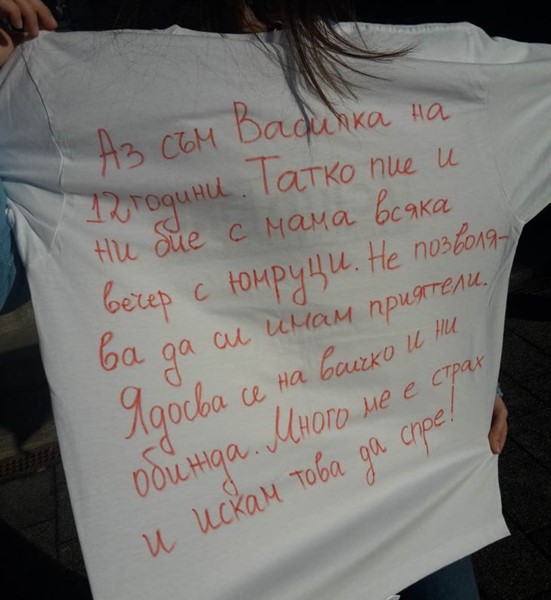 Аз съм Василка на
12 години. Татко пие и
ни бие с мама всяка
вечер с юмруци. Не позволя-
ва да си имам приятели.
Ядосва се на всичко и ни
обижда. Много ме е страх
и искам това да спре!